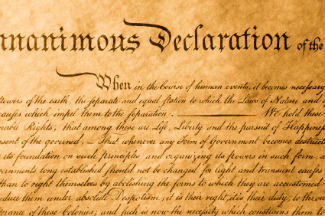 nnanimous Declaration of the
When in the Course of human events, it becomes necessary
powers of the earth, the separate and equal station to which the Laws of Nature and
causes which impel them to the separation. We hold these
Rights, that among these are Life, Liberty and the pursuit of Happiness
sent of the governed, That whenever any Form of Government becomes destructi
its foundation on such principles and organizing its powers in such form, a
ernments long established should not be changed for light and transient causes
than to right themselves by abolishing the forms to which they are accustomed
duce them under absolute Despotism, it is their right, it is their duty, to throw
erance of these Colonies; and such is now the necessity which constrains them